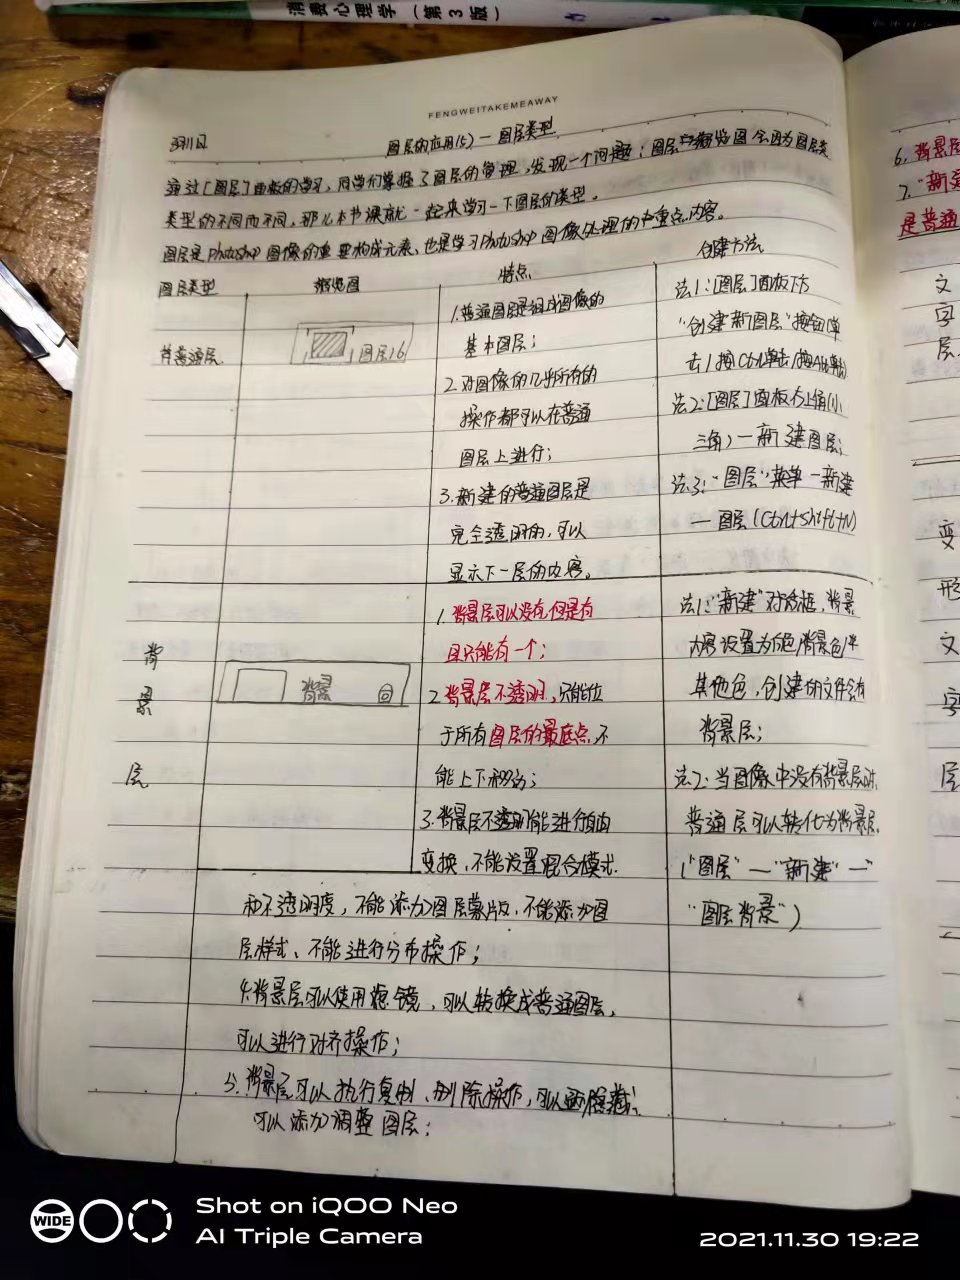 消费心理学（第3版）
FENGWEITAKEMEAWAY
图层的应用(5)—图层类型
通过[图层]面板的学习，同学们掌握了图层的管理，发现一个问题：图层预览图会因为图层类
类型的不同而不同，那么本节课就一起来学习一下图层的类型。
图层是Photoshop图像的重要构成元素，也是学习Photoshop图像处理的中重点内容。
图层类型 预览图 特点 创建方法
普通层
图层16
1.普通图层是组成图像的
基本图层；
2.对图像的几乎所有的
操作都可以在普通
图层上进行；
3.新建的普通图层是
完全透明的，可以
显示下一层的内容。
法1：[图层]面板下方
"创建新图层"按钮(单
击/按Ctrl单击/按Alt单击)
法2：[图层]面板右上角(小
三角)—新建图层；
法3："图层"菜单—新建
—图层(Ctrl+Shift+N)
背
景
层
背景
1.背景层可以没有，但是有
且只能有一个；
2.背景层不透明，只能位
于所有图层的最底点，不
能上下移动；
3.背景层不透明能进行自由
变换，不能设置混合模式
和不透明度，不能添加图层蒙版，不能添加图
层样式、不能进行分布操作；
4.背景层可以使用滤镜，可以转换成普通图层，
可以进行对齐操作；
5.背景层可以执行复制、删除操作，可以隐藏；
可以添加调整图层；
法1："新建"对话框，背景
内容设置为白色/背景色/
其他色，创建的文件会有
背景层；
法2：当图像中没有背景层时，
普通层可以转化为背景层
("图层"—"新建"—"
"图层背景")
6.背景层
7."新建
是普通
文
字
层
变
形
文
字
层
WIDE
Shot on iQOO Neo
AI Triple Camera
2021.11.30 19:22